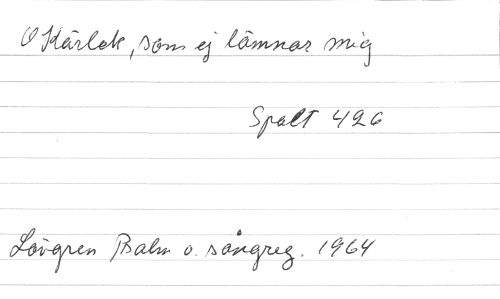 O Kärlek, som ej lämnar mig
Spalt 426
Lövgren Psalm o. sångreg. 1964